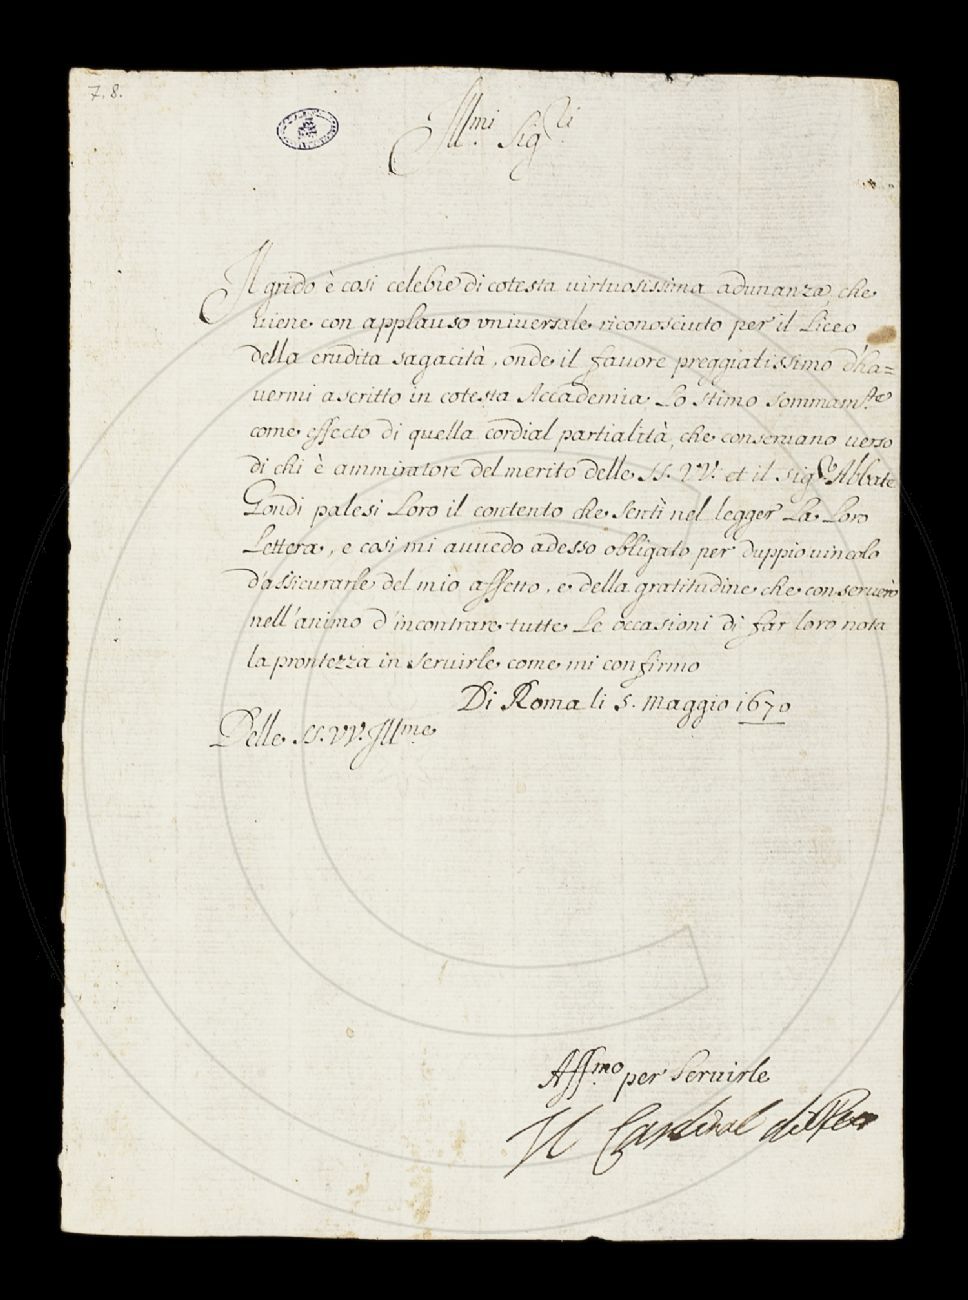 7.8.
Ill.mi Sig.ri
Il grido è così celebre di cotesta virtuosissima adunanza, che
viene con applauso vniversale riconosciuto per il Liceo
della erudita sagacità, onde il fauore preggiatissimo d'ha=
uermi ascritto in cotesta Accademia Lo stimo sommam.te
come effecto di quella cordial partialità, che conseruano verso
di chi è ammiratore del merito delle SS. VV. et il Sig.re Abbate
Gondi palesi Loro il contento che senti nel legger La Loro
Lettera, e così mi auuedo adesso obligato per duppio uincolo
d'assicurarle del mio affetto, e della gratitudine che conseruerò
nell'animo d'incontrare tutte Le occasioni di far loro nota
la prontezza in seruirle come mi confirmo
Di Roma li 5. Maggio 1670
Delle SS. VV. Ill.me
Aff.mo per Seruirle
Il Cardinal